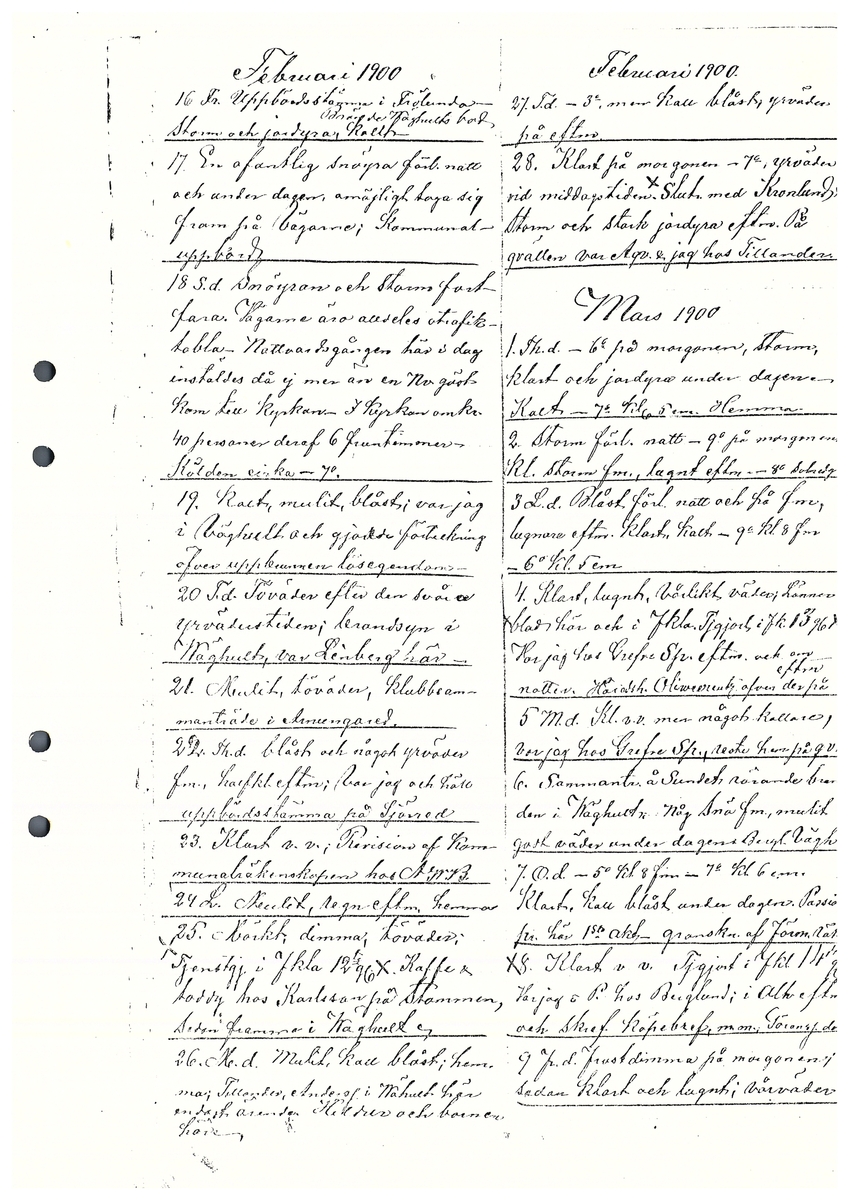 Februari 1900
16 Fr. Uppbördsstämma i Frölunda
Storm och jordyra, Kallt
17. En ofantlig snöyra förl. natt
och under dagen, omöjligt taga sig
fram på vägarne; Kommunal-
uppbörd
18 S.d. Snöyran och Storm fort-
fara. Vägarne äro alldeles otrafik-
tabla – Nattvardsgången här i dag
instäldes då ej mer än en Nv. gäst
kom till kyrkan – I Kyrkan omkr.
40 personer deraf 6 fruntimmer –
Kölden cirka – 7°.
19. Kallt, mulit, blåst; var jag
i Väghult och gjorde förteckning
öfver uppbrunnen lösegendom –
20 T.d. Töväder efter den svåra
yrväderstiden; brandsyn i
Wäghult, var Lönberg här –
21. Mulit, töväder, klubbsam-
manträde i Annungared.
22. Th.d. blåst och något yrväder
fm., halfkl. eftm; var jag och höll
uppbördsstämma på Sjöred
23. Klart v. v.; Revision af Kom-
munalräkenskapen hos A.W.B.
24 L. Mulit, regn eftm, hemma
25. Mörkt, dimma, töväder;
Tjenstgj. i Fkla X. Kaffe &
toddy hos Karlsson på Stommen,
sedan framme i Wäghult
26. M.d. Mulit, kall blåst; hem-
ma; Tillander, Anders i Wähult här
endast ärenden och barnen
här
Februari 1900.
27. T.d. – 3°. men kall blåst, yrväder
på eftm.
28. Klart på morgonen – 7°, yrväder
vid middagstiden. X Slutr. med Kronlund;
Storm och stark jordyra eftm. På
qvällen var Agv. & jag hos Tillander.
Mars 1900
1. Th.d. – 6° på morgonen, storm,
klart och jordyra under dagen –
Kallt – 7° kl. 5 em. Hemma.
2. Storm förl. natt – 9° på morgonen
Kl. Storm fm., lugnt eftm. – 8°
3 L.d. Blåst förl. natt och på fm,
lugnare eftm. Klart, kallt – 9° kl 8 fm
– 6° kl. 5 em
4. Klart, lugnt, vårlikt väder;
här och i Fkla. Tjgjort i Fk.
Var jag hos Grefve Sp. eftm. och om
natten. Häradsh. öfver der på
eftm
5 M.d. Kl. v.v. men något kallare,
var jag hos Grefve Sp., reste hem på qv.
6. Sammantr. å Sundet rörande bran
den i Wäghult. Någ snö fm, mulit
godt väder under dagen. Bergl. Vägh
7. O.d. – 5° kl 8 fm – 7° kl 6 em.
Klart, kall blåst under dagen. Passio
pr. här 1sta akt – granskn. af
X8. Klart v. v. Tjgjort i Fkl
Var jag & P. hos Berglund; i eftm
och skref köpebref, m.m.;
9 Fr.d. frostdimma på morgonen;
sedan klart och lugnt; vårväder